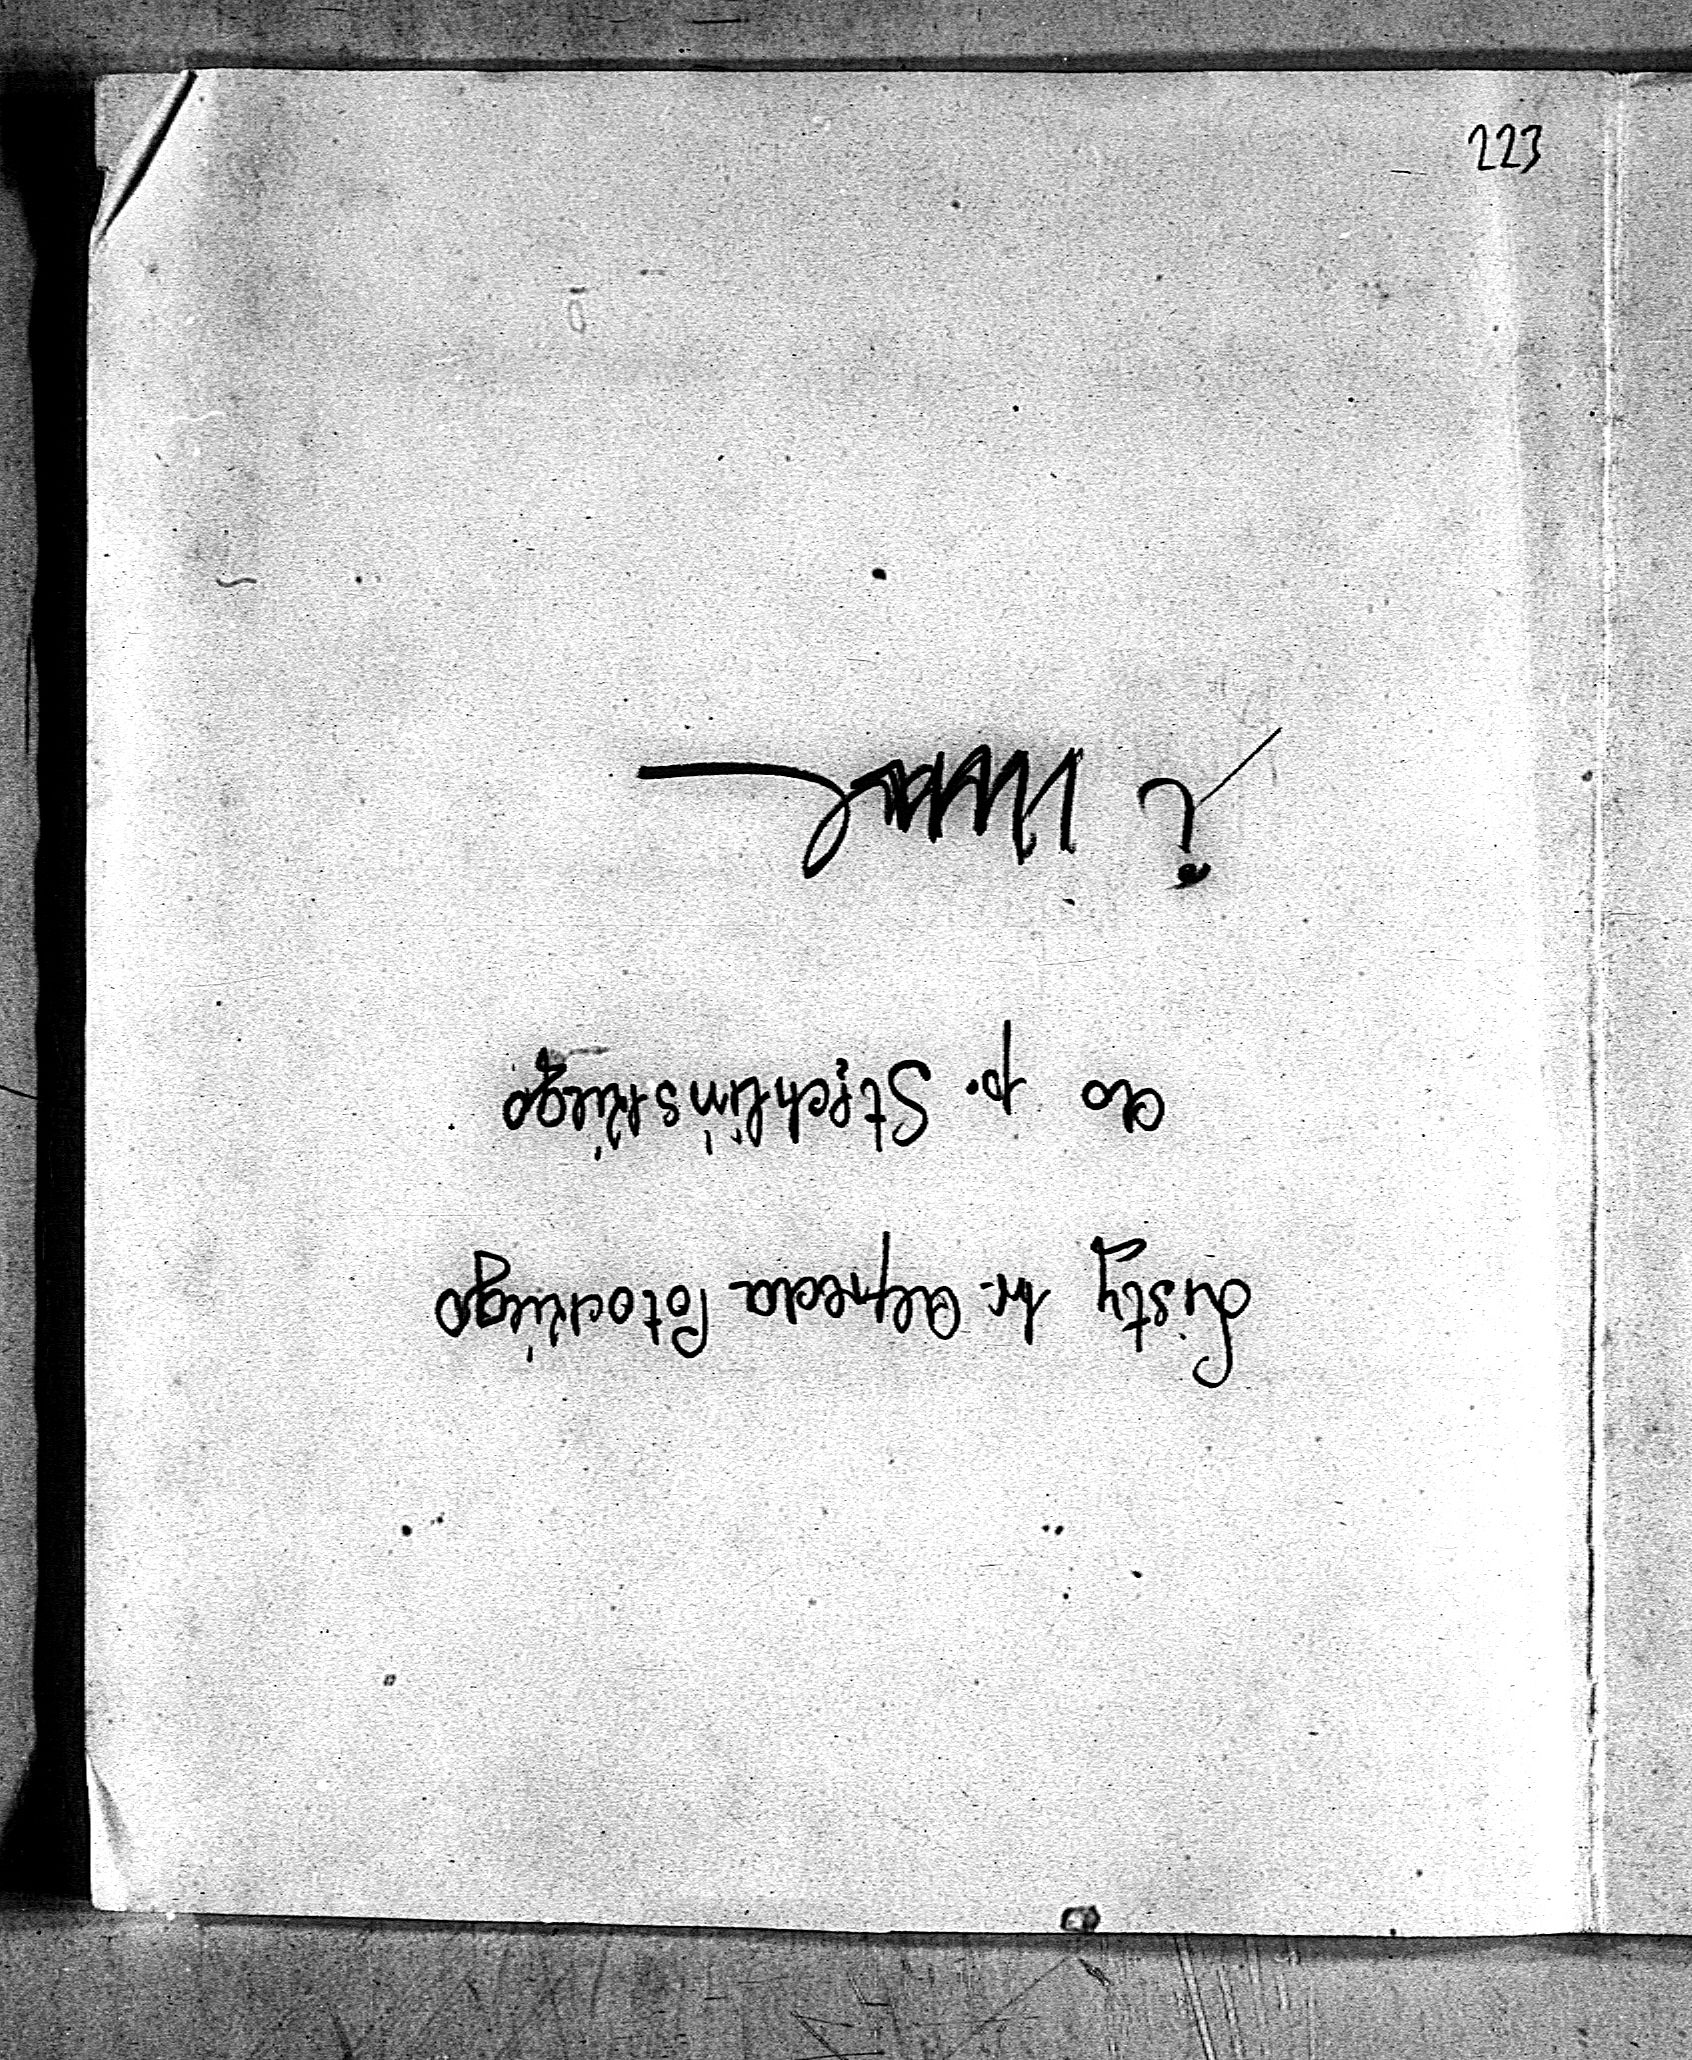 223
Listy hr. Alfreda Potockiego
do p. Stechlinskiego
i